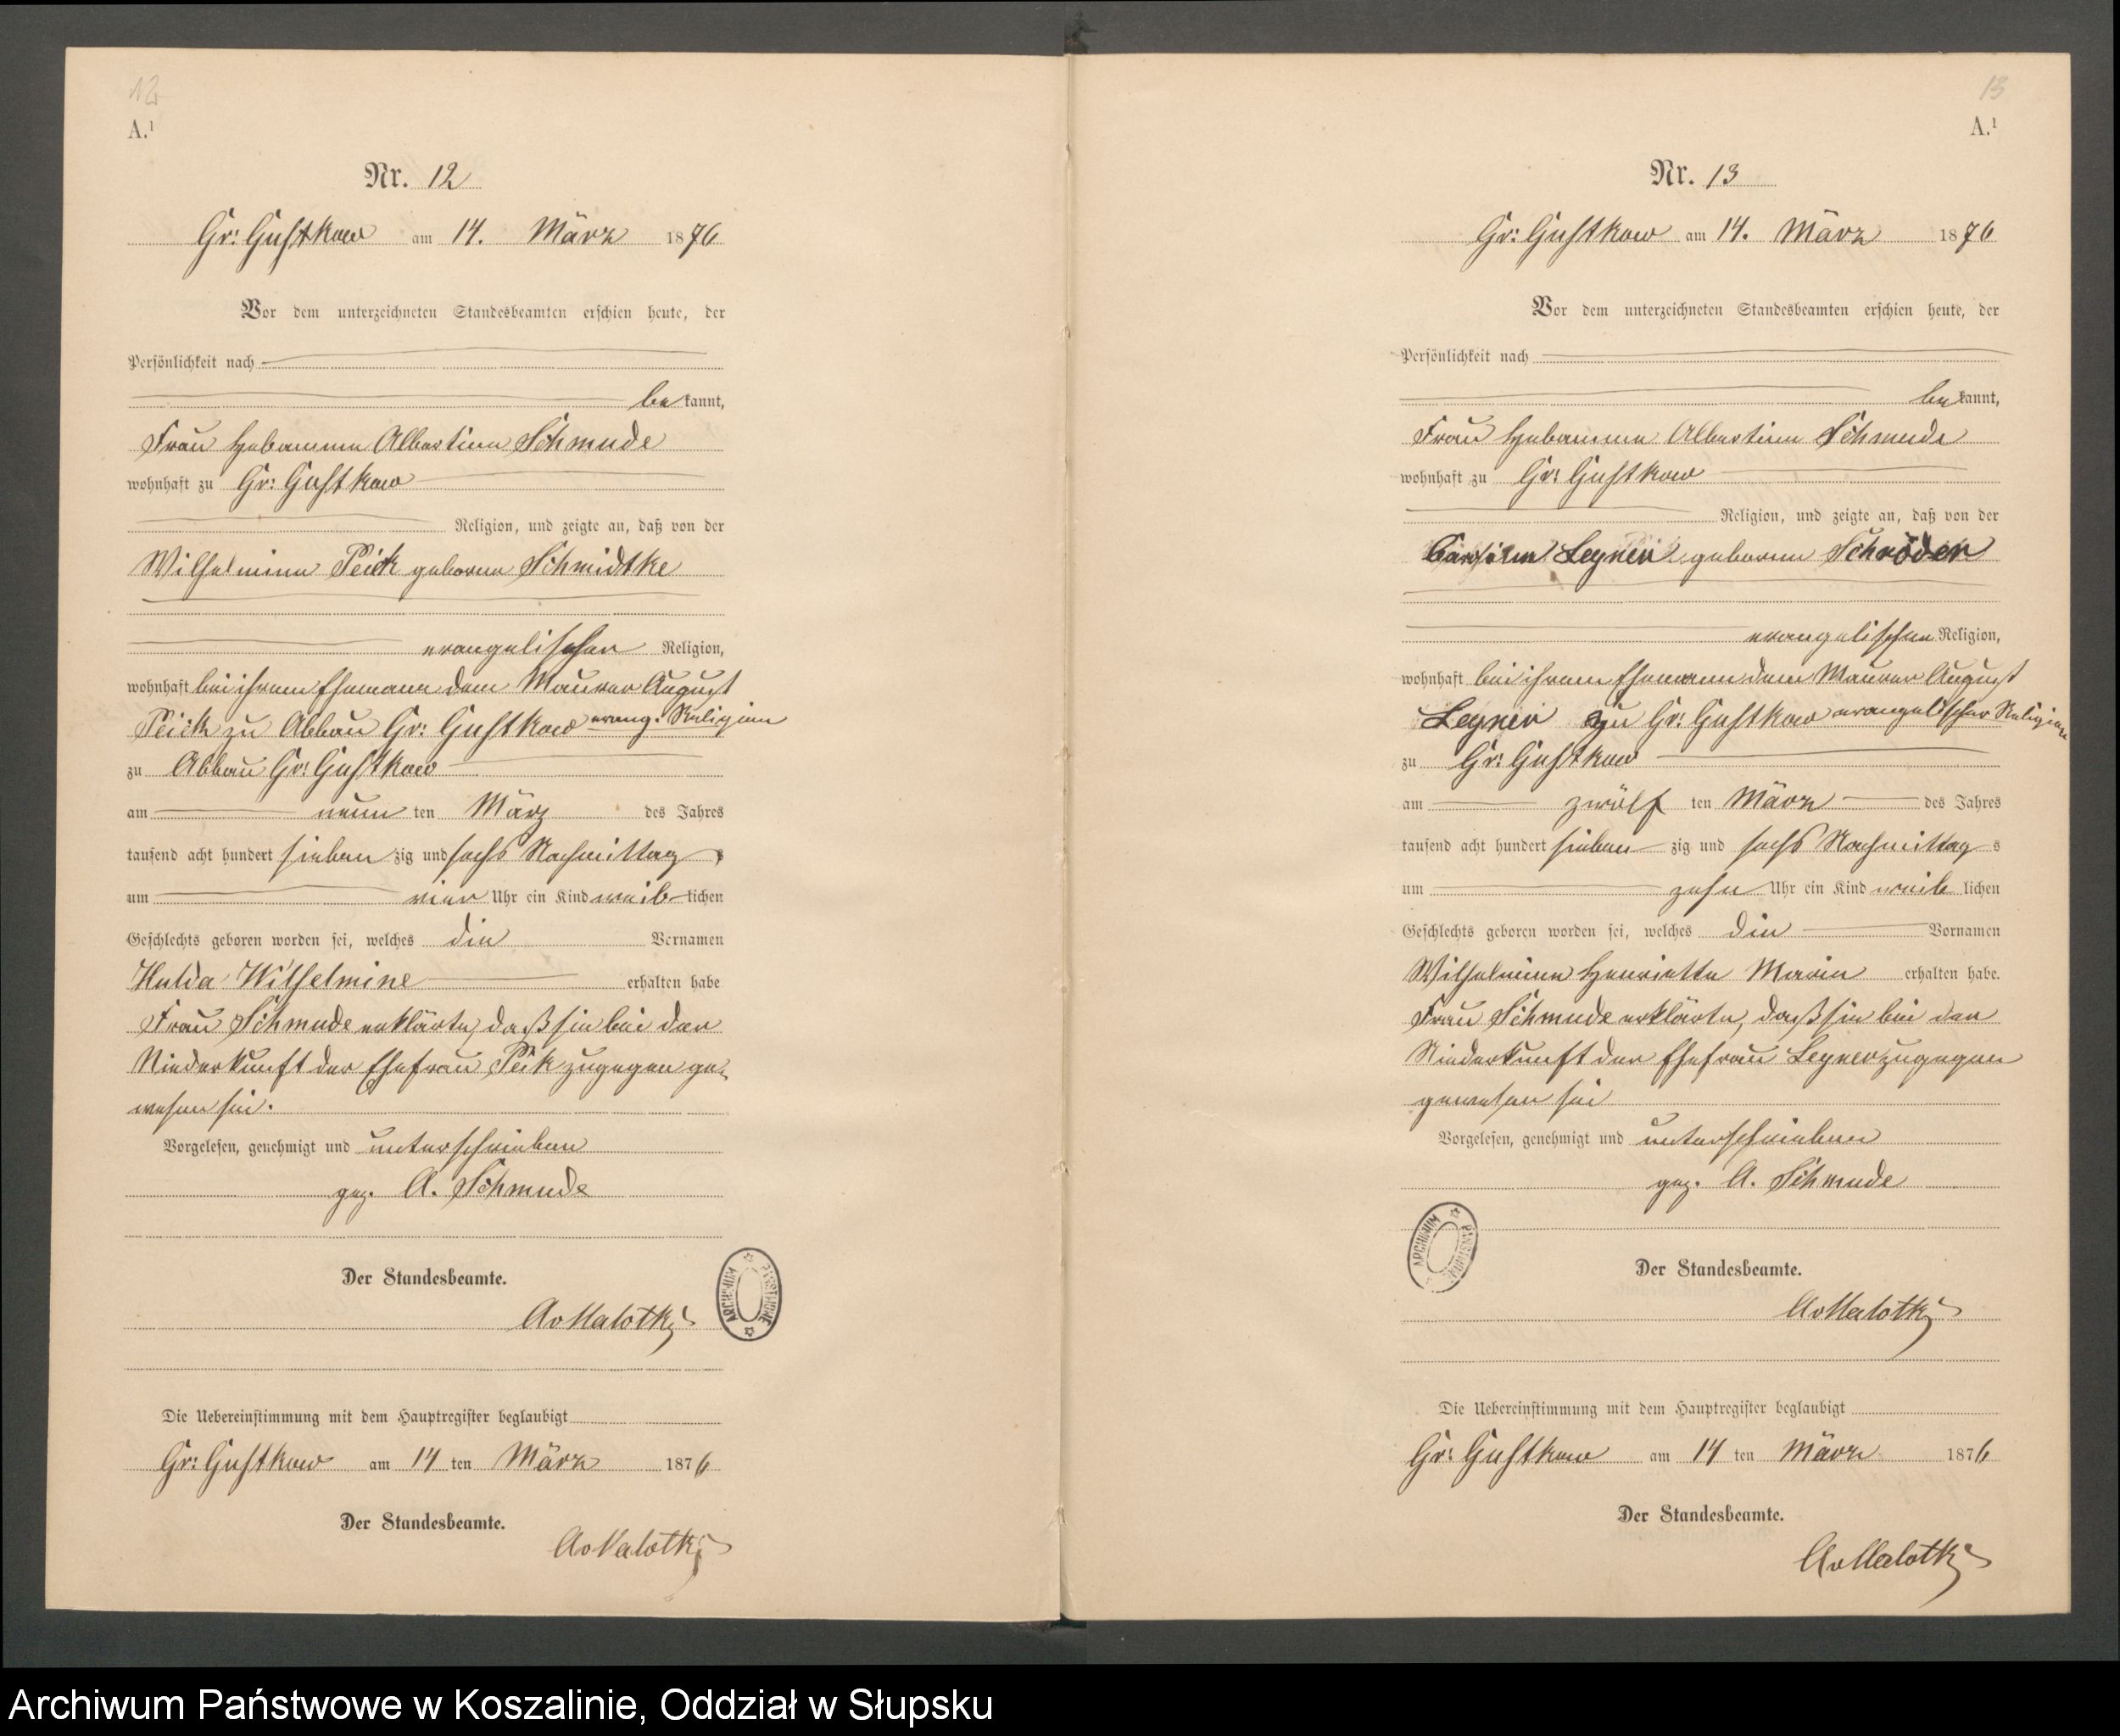 12
A.¹
Nr. 12
Gr: Gustkow am 14. März 1876
Vor dem unterzeichneten Standesbeamten erschien heute, der
Persönlichkeit nach
bekannt,
Frau Hebamme Albertine Schmude
wohnhaft zu Gr: Gustkow
Religion, und zeigte an, daß von der
Wilhelmine Peick geborne Schmidtke
evangelischer Religion,
wohnhaft bei ihrem Ehemann dem Maurer August
Peick zu Abbau Gr: Gustkow evang. Religion
zu Abbau Gr: Gustkow
am neun ten März des Jahres
tausend acht hundert sieben zig und sechs Nachmittag s
um vier Uhr ein Kind weiblichen
Geschlechts geboren worden sei, welches die Vornamen
Hulda Wilhelmine erhalten habe
Frau Schmude erklärte, daß sie bei der
Niederkunft der Ehefrau Peik zugegen ge-
wesen sei.
Vorgelesen, genehmigt und unterschrieben
gez. A. Schmude
Der Standesbeamte.
AvMalotky
ARCHIWUM PAŃSTWOWE
Die Uebereinstimmung mit dem Hauptregister beglaubigt
Gr: Gustkow am 14 ten März 1876
Der Standesbeamte.
AvMalotky
13
A.¹
Nr. 13
Gr: Gustkow am 14. März 1876
Vor dem unterzeichneten Standesbeamten erschien heute, der
Persönlichkeit nach
bekannt,
Frau Hebamme Albertine Schmude
wohnhaft zu Gr: Gustkow
Religion, und zeigte an, daß von der
geborne Schröder
evangelischen Religion,
wohnhaft bei ihrem Ehemann dem Maurer August
Legner zu Gr: Gustkow evangelischer Religion
zu Gr: Gustkow
am zwölf ten März des Jahres
tausend acht hundert sieben zig und sechs Nachmittag s
um zehn Uhr ein Kind weiblichen
Geschlechts geboren worden sei, welches die Vornamen
Wilhelmine Henriette Marie erhalten habe.
Frau Schmude erklärte, daß sie bei der
Niederkunft der Ehefrau Legner zugegen
gewesen sei
Vorgelesen, genehmigt und unterschrieben
gez. A. Schmude
ARCHIWUM PAŃSTWOWE
Der Standesbeamte.
AvMalotky
Die Uebereinstimmung mit dem Hauptregister beglaubigt
Gr: Gustkow am 14 ten März 1876
Der Standesbeamte.
AvMalotky
Archiwum Państwowe w Koszalinie, Oddział w Słupsku